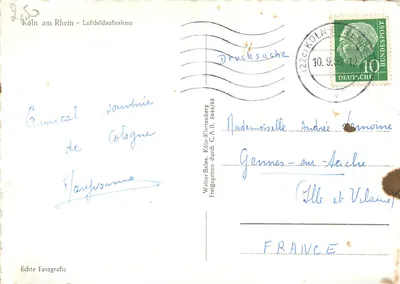 2,50
Köln am Rhein - Luftbildaufnahme
Drucksache
10.9.
10
DEUTSCHE BUNDESPOST
Amical souvenir
de Cologne
Walter Baies, Köln-Klettenberg
Freigegeben durch C.A.B.
Mademoiselle Andrée Lemoine
Gennes-sur-Seiche
(Ille et Vilaine)
FRANCE
Echte Fotografie